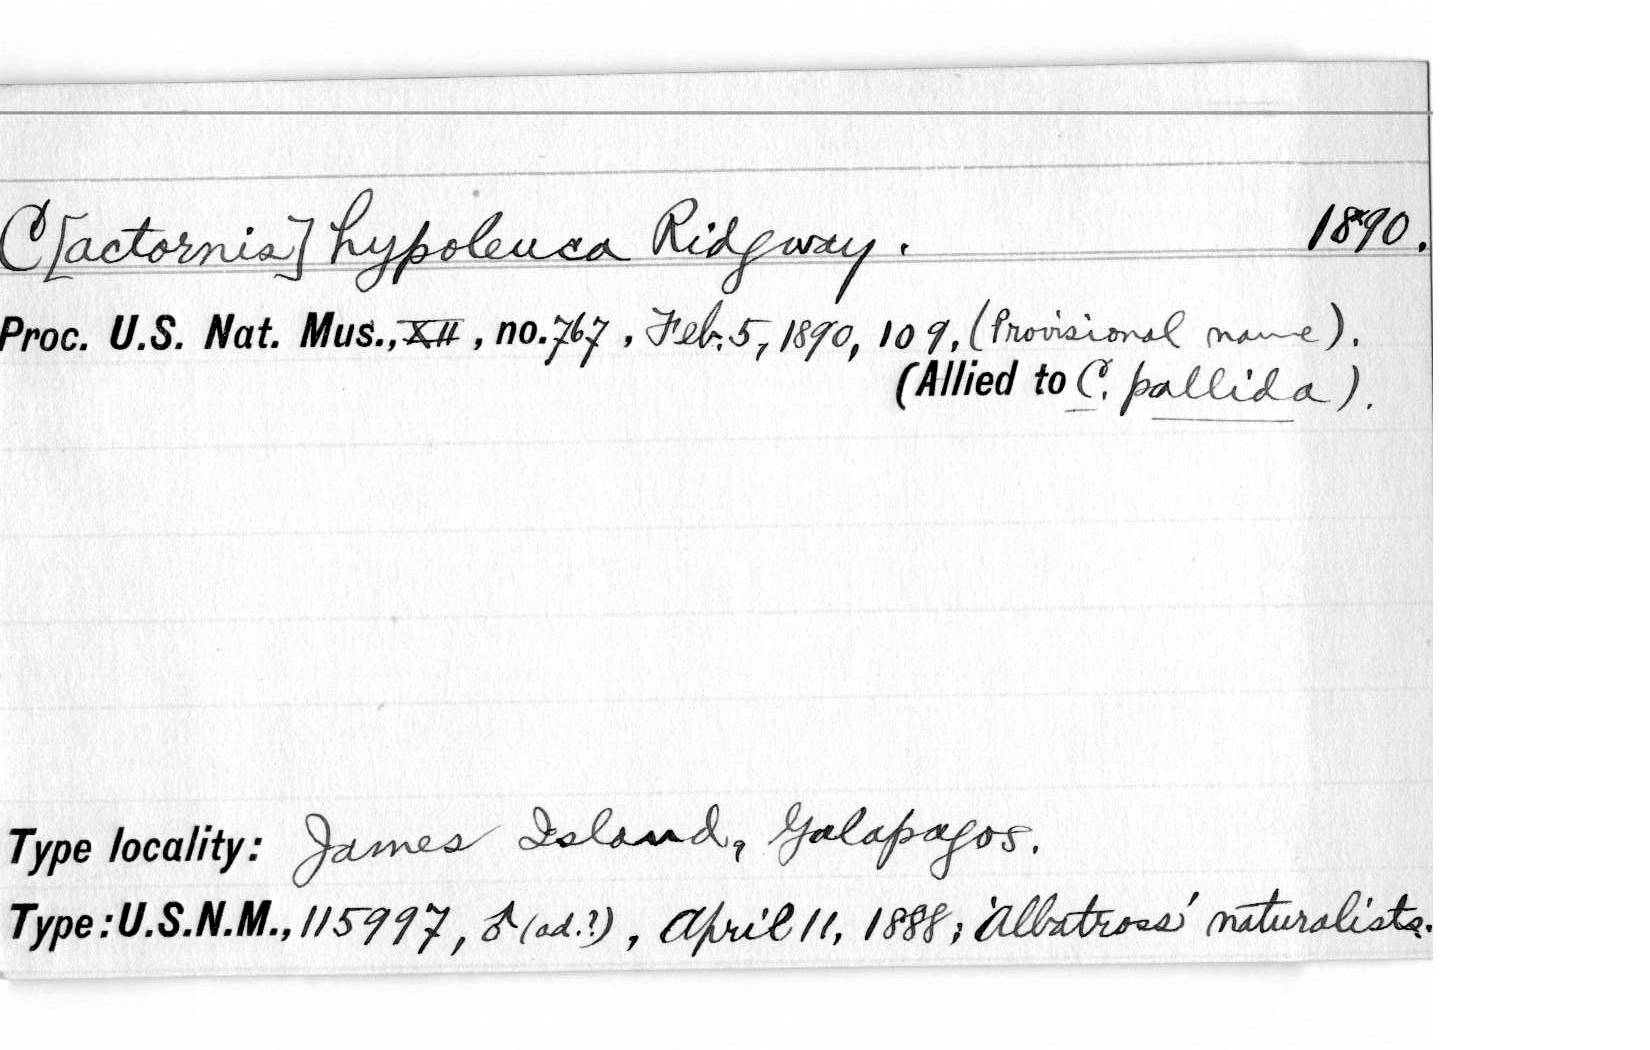 C[actornis] hypoleuca Ridgway. 1890.
Proc. U.S. Nat. Mus., XII, no. 767, Feb. 5, 1890, 109, (Provisional name).
(Allied to C. pallida).
Type locality: James Island, Galapagos.
Type: U.S.N.M., 115997, ♂ (ad.?), April 11, 1888; 'Albatross' naturalists.